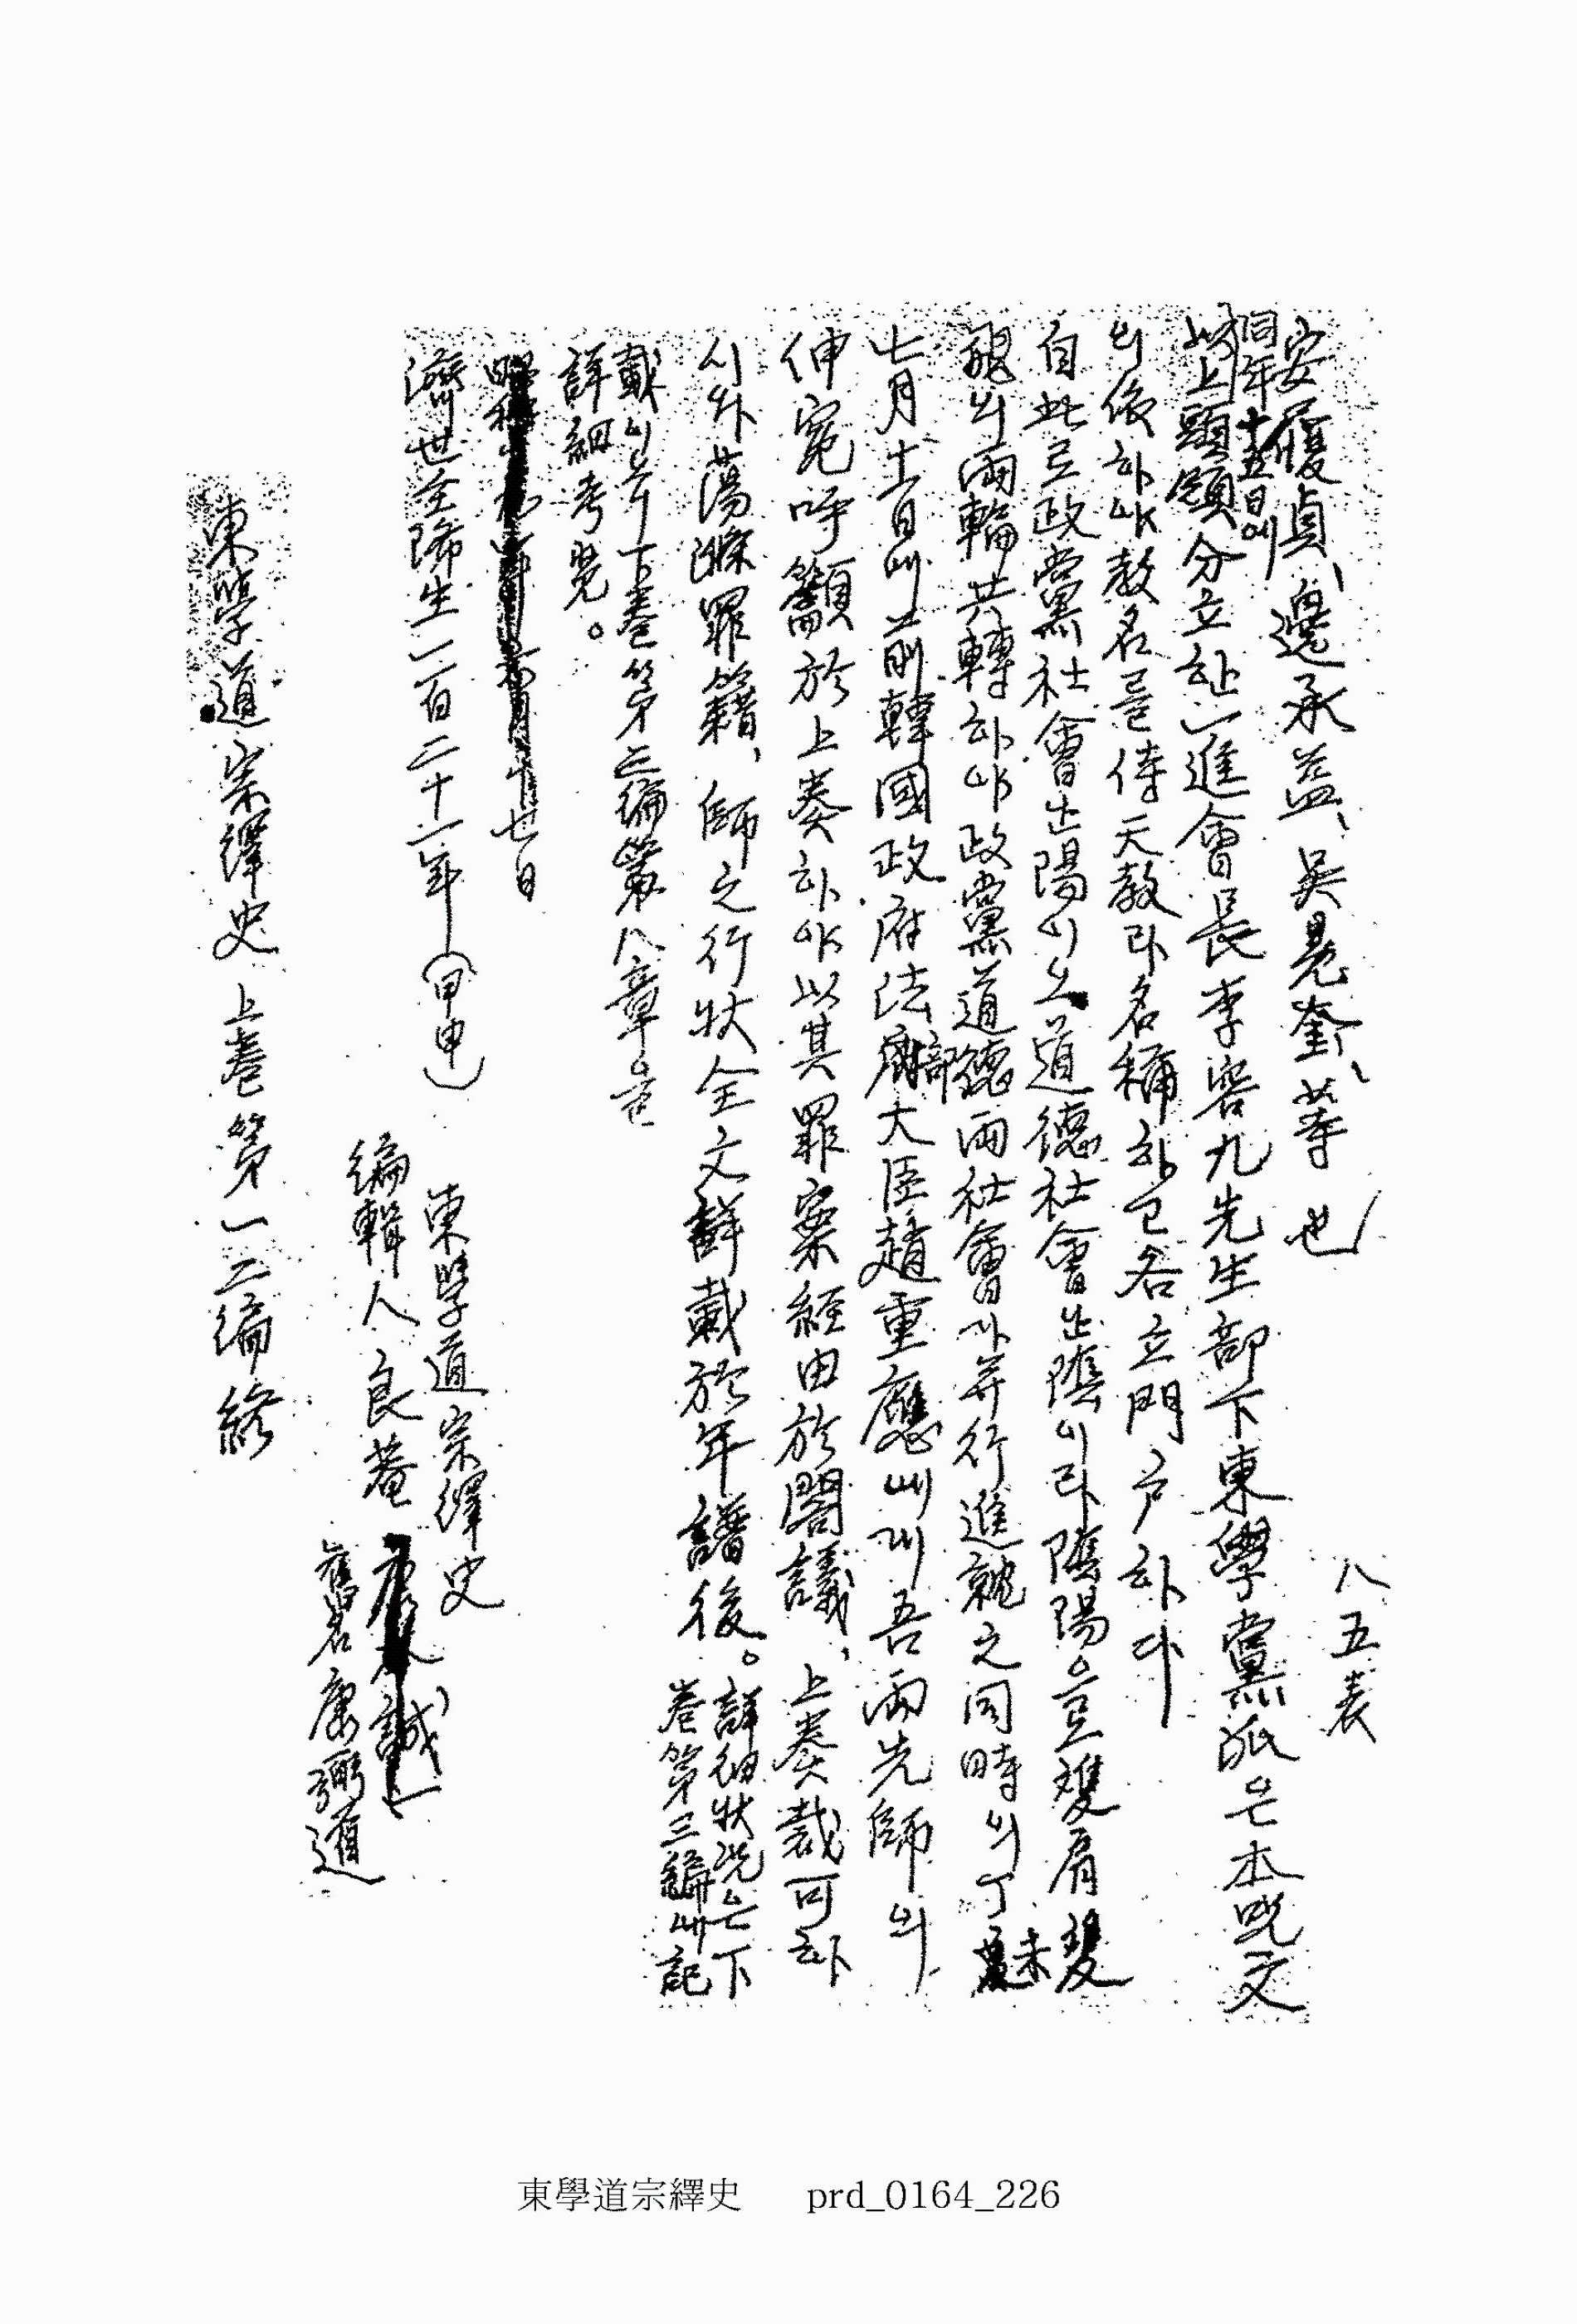 八五表
安履貞、邊承益、吳晃奎、等也
同年十五日에
以上頭領分立하니一進會長李容九先生部下東學黨派은本呪文
의後하야敎名을侍天敎라名稱하고各立門户하다
自此로政黨社會는陽이오道德社會는陰이라陰陽으로雙肩雙
腿의兩輪共轉하야政黨道德兩社會가并行進就之同時의丁未
七月十一日에前韓國政府法部大臣趙重應에게吾兩先師의
伸寃呼籲於上奏하야以其罪案經由於閣議、上奏裁可하
시사蕩滌罪籍、師之行狀全文鮮載於年譜後。詳細狀況은下
卷第三編에記
載이	下卷第三編第八章을
詳細考覽。
月十七日
濟世主降生一百二十一年(甲申)
東學道宗繹史
編輯人良菴
舊名康弼道
東學道宗繹史上卷第一二編終
東學道宗繹史 prd_0164_226